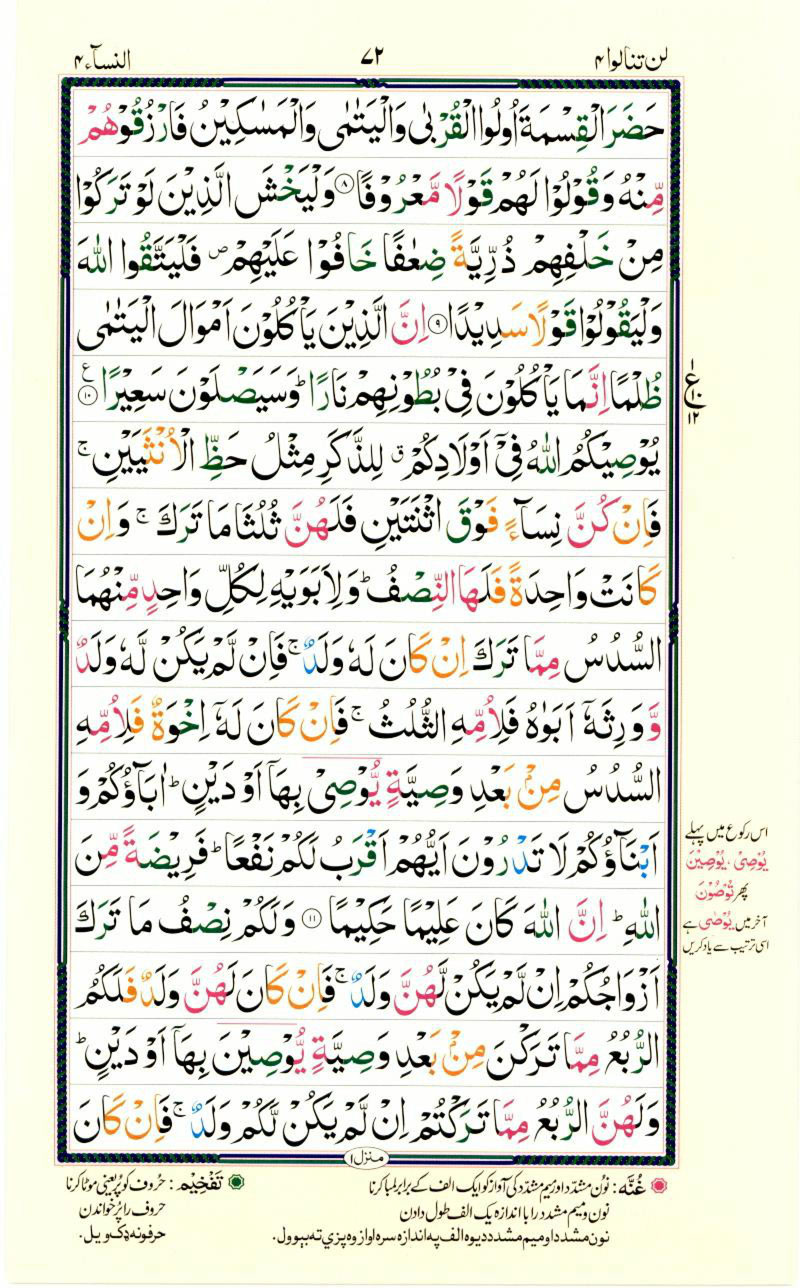 لن تنالوا ٤
٧٢
النسآء ٤
حَضَرَ الْقِسْمَةَ اُولُوا الْقُرْبٰى وَالْيَتٰمٰى وَالْمَسٰكِيْنُ فَارْزُقُوْهُمْ
مِّنْهُ وَقُوْلُوْا لَهُمْ قَوْلًا مَّعْرُوْفًا ۝۸ وَلْيَخْشَ الَّذِيْنَ لَوْ تَرَكُوْا
مِنْ خَلْفِهِمْ ذُرِّيَّةً ضِعٰفًا خَافُوْا عَلَيْهِمْ ۖ فَلْيَتَّقُوا اللّٰهَ
وَلْيَقُوْلُوْا قَوْلًا سَدِيْدًا ۝۹ اِنَّ الَّذِيْنَ يَاْكُلُوْنَ اَمْوَالَ الْيَتٰمٰى
ظُلْمًا اِنَّمَا يَاْكُلُوْنَ فِيْ بُطُوْنِهِمْ نَارًا ؕ وَسَيَصْلَوْنَ سَعِيْرًا ۝۱۰ ع
ع ١ ١٠ ١٢
يُوْصِيْكُمُ اللّٰهُ فِيْۤ اَوْلَادِكُمْ ۗ لِلذَّكَرِ مِثْلُ حَظِّ الْاُنْثَيَيْنِ ۚ
فَاِنْ كُنَّ نِسَآءً فَوْقَ اثْنَتَيْنِ فَلَهُنَّ ثُلُثَا مَا تَرَكَ ۚ وَاِنْ
كَانَتْ وَاحِدَةً فَلَهَا النِّصْفُ ؕ وَلِاَبَوَيْهِ لِكُلِّ وَاحِدٍ مِّنْهُمَا
السُّدُسُ مِمَّا تَرَكَ اِنْ كَانَ لَهٗ وَلَدٌ ۚ فَاِنْ لَّمْ يَكُنْ لَّهٗ وَلَدٌ
وَّوَرِثَهٗۤ اَبَوٰهُ فَلِاُمِّهِ الثُّلُثُ ۚ فَاِنْ كَانَ لَهٗۤ اِخْوَةٌ فَلِاُمِّهِ
السُّدُسُ مِنْۢ بَعْدِ وَصِيَّةٍ يُّوْصِيْ بِهَاۤ اَوْ دَيْنٍ ؕ اٰبَآؤُكُمْ وَ
اَبْنَآؤُكُمْ لَا تَدْرُوْنَ اَيُّهُمْ اَقْرَبُ لَكُمْ نَفْعًا ؕ فَرِيْضَةً مِّنَ
اللّٰهِ ؕ اِنَّ اللّٰهَ كَانَ عَلِيْمًا حَكِيْمًا ۝۱۱ وَلَكُمْ نِصْفُ مَا تَرَكَ
اَزْوَاجُكُمْ اِنْ لَّمْ يَكُنْ لَّهُنَّ وَلَدٌ ۚ فَاِنْ كَانَ لَهُنَّ وَلَدٌ فَلَكُمُ
الرُّبُعُ مِمَّا تَرَكْنَ مِنْۢ بَعْدِ وَصِيَّةٍ يُّوْصِيْنَ بِهَاۤ اَوْ دَيْنٍ ؕ
وَلَهُنَّ الرُّبُعُ مِمَّا تَرَكْتُمْ اِنْ لَّمْ يَكُنْ لَّكُمْ وَلَدٌ ۚ فَاِنْ كَانَ
اس رکوع میں پہلے
يُوْصِيْ، يُوْصِيْنَ
پھر تُوْصُوْنَ
آخر میں يُوْصٰى ہے
اسی ترتیب سے یاد کریں
منزل ۱
غُنَّه: نون مشدد اور میم مشدد کی آواز کو ایک الف کے برابر لمبا کرنا
نون و میم مشدد را با اندازه یک الف طول دادن
نون مشدد او میم مشدد د یوه الف په اندازه سره اواز وه پزې ته بېوول.
تَفْخِيْم: حروف کو پُر یعنی موٹا کرنا
حروف را پر خواندن
حرفونه ډک ویل.